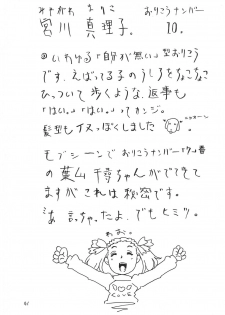 みやがわ まりこ おりこうナンバー
宮川 真理子 10.
◎いわゆる「自分が無い」型おりこう
です。えばってる子のうしろをちょこちょこ
ひっついて歩くような、返事も
「はい。」「はい。」ってカンジ。
髪型もイヌっぽくしました
モブシーンでおりこうナンバー「7」番
の葉山千尋ちゃんがでてきて
ますがこれは秘密です。
あ 言っちゃったよ。でもヒミツ。
わおー
DOG
LOVE